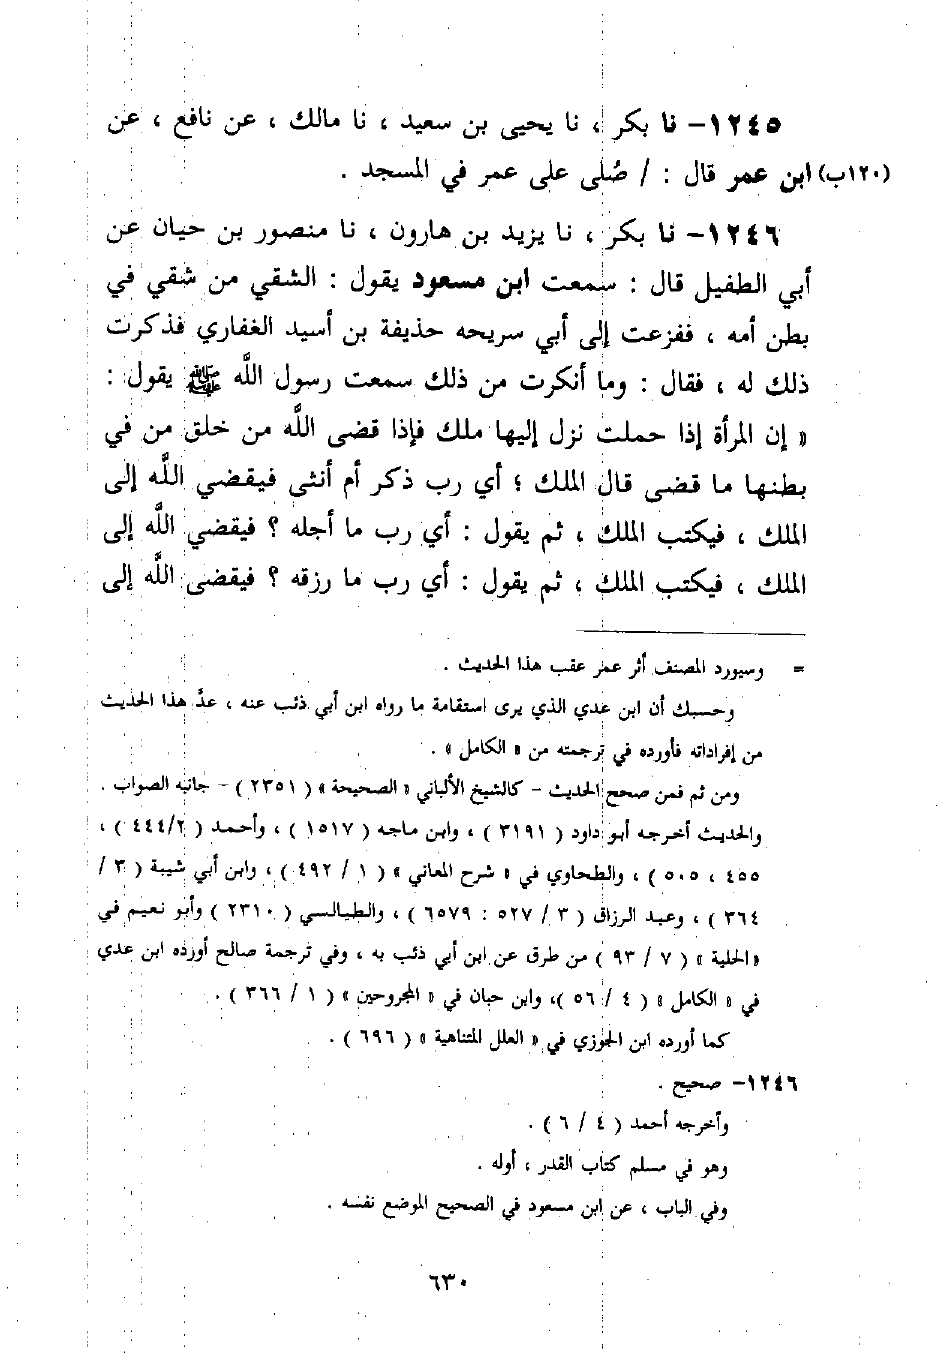 ١٢٤٥- نا بكر ، نا يحيى بن سعيد ، نا مالك ، عن نافع ، عن
(١٢٠ب) ابن عمر قال : / صُلى على عمر في المسجد .
١٢٤٦- نا بكر ، نا يزيد بن هارون ، نا منصور بن حيان عن
أبي الطفيل قال : سمعت ابن مسعود يقول : الشقي من شقي في
بطن أمه ، ففزعت إلى أبي سريحه حذيفة بن أسيد الغفاري فذكرت
ذلك له ، فقال : وما أنكرت من ذلك سمعت رسول اللَّه ﷺ يقول :
« إن المرأة إذا حملت نزل إليها ملك فإذا قضى اللَّه من خلق من في
بطنها ما قضى قال الملك ؛ أي رب ذكر أم أنثى فيقضي اللَّه إلى
الملك ، فيكتب الملك ، ثم يقول : أي رب ما أجله ؟ فيقضي اللَّه إلى
الملك ، فيكتب الملك ، ثم يقول : أي رب ما رزقه ؟ فيقضى اللَّه إلى
= وسيورد المصنف أثر عمر عقب هذا الحديث .
وحسبك أن ابن عدي الذي يرى استقامة ما رواه ابن أبي ذئب عنه ، عدَّ هذا الحديث
من إفراداته فأورده في ترجمته من « الكامل » .
ومن ثم فمن صحح الحديث - كالشيخ الألباني « الصحيحة » ( ٢٣٥١ ) - جانبه الصواب .
والحديث أخرجه أبو داود ( ٣١٩١ ) ، وابن ماجه ( ١٥١٧ ) ، وأحمد ( ٤٤٤/٢ ) ،
٤٥٥ ، ٥٠٥ ) ، والطحاوي في « شرح المعاني » ( ١ / ٤٩٢ ) ، وابن أبي شيبة ( ٣ /
٣٦٤ ) ، وعبد الرزاق ( ٣ / ٥٢٧ : ٦٥٧٩ ) ، والطيالسي ( ٢٣١٠ ) وأبو نعيم في
« الحلية » ( ٧ / ٩٣ ) من طرق عن ابن أبي ذئب به ، وفي ترجمة صالح أورده ابن عدي
في « الكامل » ( ٤ / ٥٦ )، وابن حبان في « المجروحين » ( ١ / ٣٦٦ ) .
كما أورده ابن الجوزي في « العلل المتناهية » ( ٦٩٦ ) .
١٢٤٦- صحيح .
وأخرجه أحمد ( ٤ / ٦ ) .
وهو في مسلم كتاب القدر ، أوله .
وفي الباب ، عن ابن مسعود في الصحيح الموضع نفسه .
٦٣٠